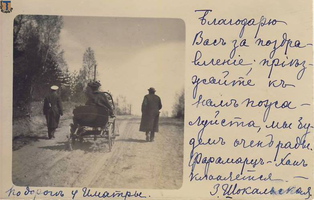 Благодарю
Васъ за поздра-
вленіе; пріѣз-
жайте къ
намъ пожа-
луйста, мы бу-
демъ очень рады.
Фарамарзъ-ханъ
кланяется. –
З. Шокальская
По дорогѣ у Иматры.